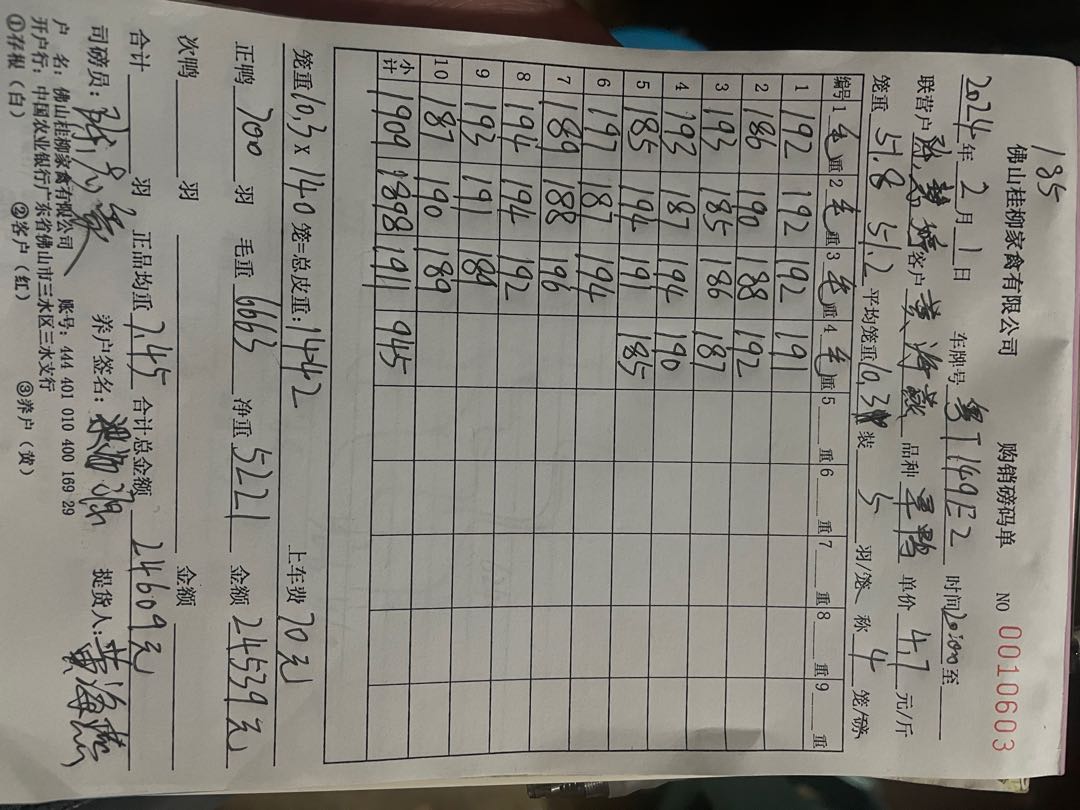 185
佛山桂柳家禽有限公司 购销磅码单 NO 0010603
2024年2月1日 车牌号 粤T149E2 时间20:00至
联营户 客户 黄海燕 品种 单价 4.7 元/斤
笼重 51.8 51.2 平均笼重10.3 装 5 羽/笼 称 4 笼/磅
编号 1毛重 2毛重 3毛重 4毛重 5 重 6 重 7 重 8 重 9 重
1 192 192 192 191
2 186 190 188 192
3 193 185 186 187
4 193 187 194 190
5 185 194 191 185
6 197 187 194
7 189 188 196
8 194 194 192
9 193 191 189
10 187 190 189
小计 1909 1898 1911 945
笼重10.3×140笼=总支重:1442 上车费 70元
正鸭 700 羽 毛重 6663 净重 5221 金额 24539元
次鸭 羽 金额
合计 羽 正品均重 7.45 合计总金额 24609元
司磅员: 养户签名: 提货人:黄海燕
户 名:佛山桂柳家禽有限公司 账号:444 401 010 400 169 29
开户行:中国农业银行广东省佛山市三水区三水支行
①存根(白) ②客户(红) ③养户(黄)